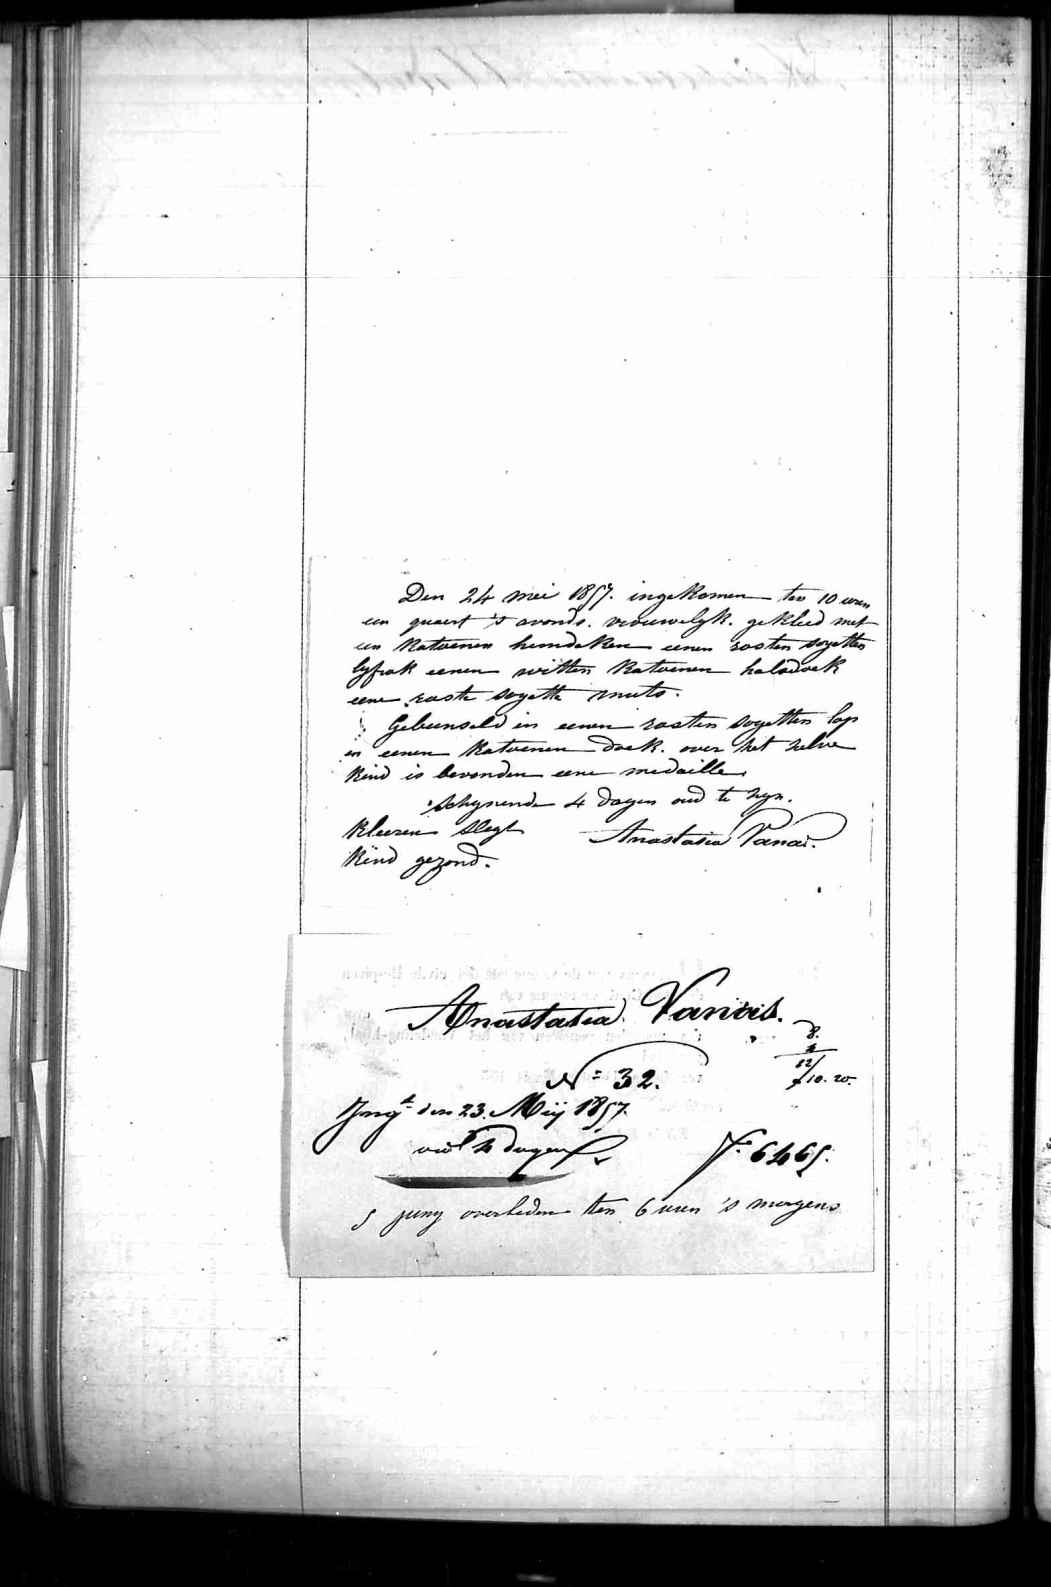 Den 24 mei 1857. ingekomen ten 10 uren
een quaert 's avonds. vrouwelyk. gekleed met
een katoenen hemdeken eenen rosten soyetten
lyfrok eenen witten katoenen halsdoek
eene roste soyette muts.
Gebunseld in eenen rosten soyetten lap
en eenen katoenen doek. over het zelve
kind is bevonden eene medaille
schynende 4 dagen oud te zyn.
kleeren slegt
Anastasia Vanai.
kind gezond.
Anastasia Vanais.
8.
4
12/
f 10. 20.
N = 32.
Ingt den 23. Meij 1857.
oud 4 dagen
F. 6465.
5 juny overleden ten 6 uren 's morgens